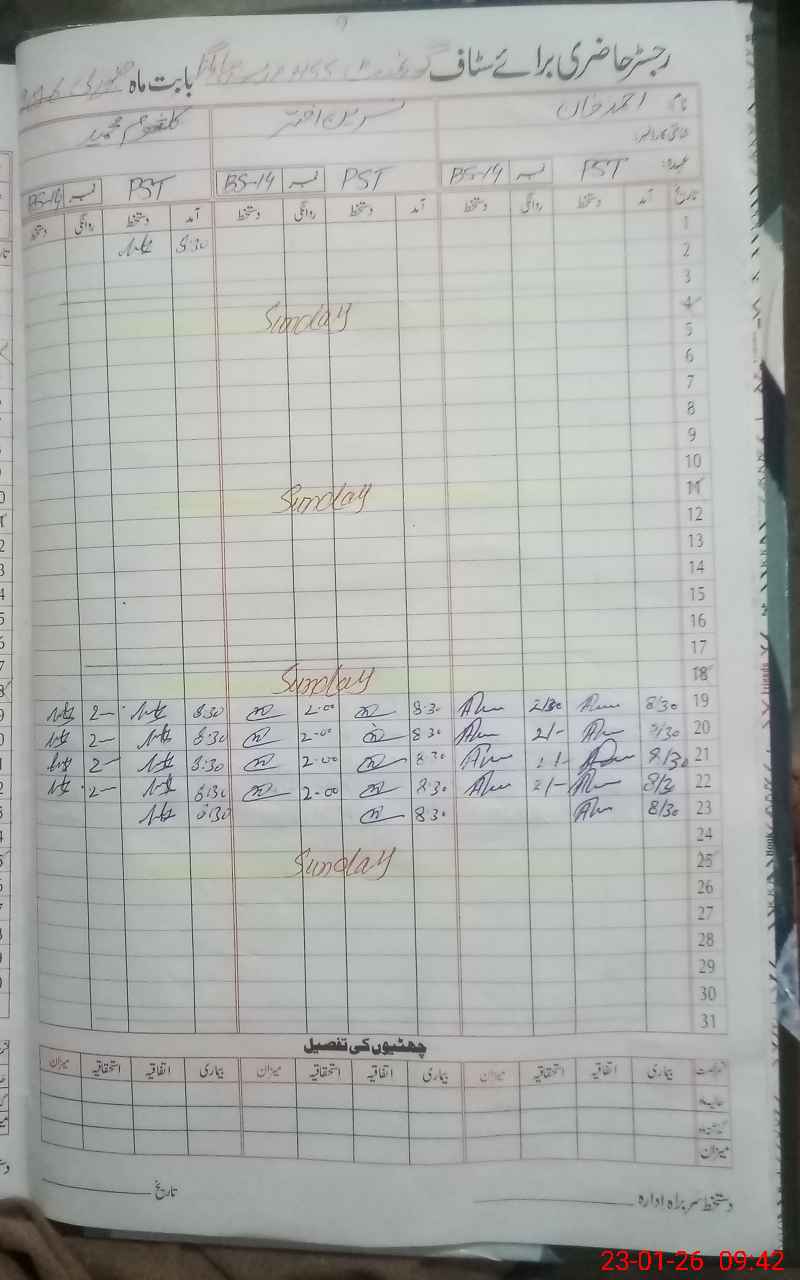 رجسٹر حاضری برائے سٹاف گورنمنٹ بابت ماہ جنوری
نام: احمد خان نسرین اختر کلثوم
عہدہ: PST BS-14 PST BS-14 PST BS-14
تاریخ آمد دستخط روانگی دستخط آمد دستخط روانگی دستخط آمد دستخط روانگی دستخط
1
2 8:30
3
4 Sunday
5
6
7
8
9
10
11 Sunday
12
13
14
15
16
17
18 Sunday
19 8/30 2/30 8:30 2:00 8:30 2-
20 8/30 2/- 8:30 2:00 8:30 2-
21 8/30 2/- 8:30 2:00 8:30 2-
22 8/30 2/- 8:30 2:00 8:30 2-
23 8/30 8:30 8:30
24
25 Sunday
26
27
28
29
30
31
چھٹیوں کی تفصیل
بیماری اتفاقیہ استحقاقیہ میزان بیماری اتفاقیہ استحقاقیہ میزان بیماری اتفاقیہ استحقاقیہ میزان
میزان
دستخط سربراہ ادارہ تاریخ
23-01-26 09:42